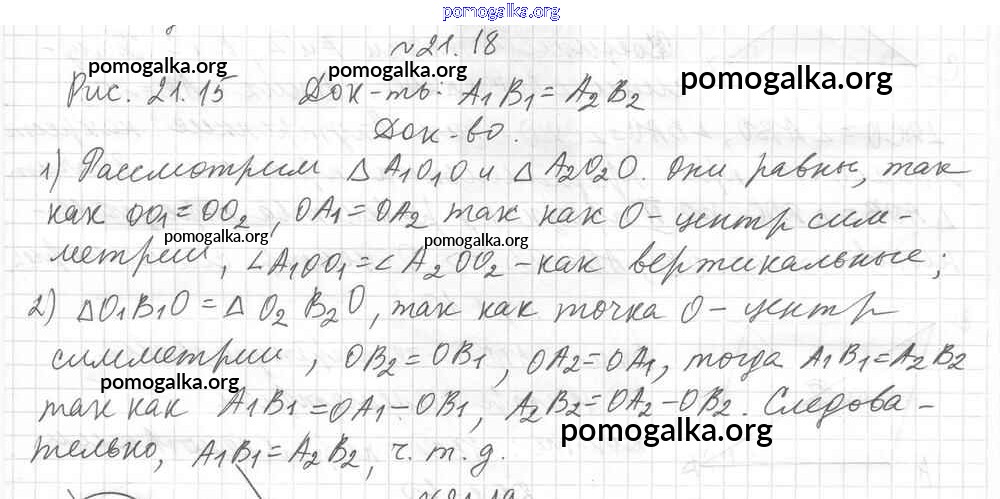 pomogalka.org
№21.18
pomogalka.org pomogalka.org pomogalka.org
Рис. 21.15 Док-ть: A₁B₁ = A₂B₂
Док-во.
1) Рассмотрим Δ A₁O₁O и Δ A₂O₂O. Они равны, так
как OO₁ = OO₂, OA₁ = OA₂ так как O - центр сим-
pomogalka.org pomogalka.org
метрии, ∠A₁OO₁ = ∠A₂OO₂ - как вертикальные;
2) ΔO₁B₁O = Δ O₂B₂O, так как точка O - центр
симметрии, OB₂ = OB₁, OA₂ = OA₁, тогда A₁B₁ = A₂B₂
pomogalka.org
так как A₁B₁ = OA₁ - OB₁, A₂B₂ = OA₂ - OB₂. Следова-
pomogalka.org
тельно, A₁B₁ = A₂B₂, ч. т. д.
№21.19